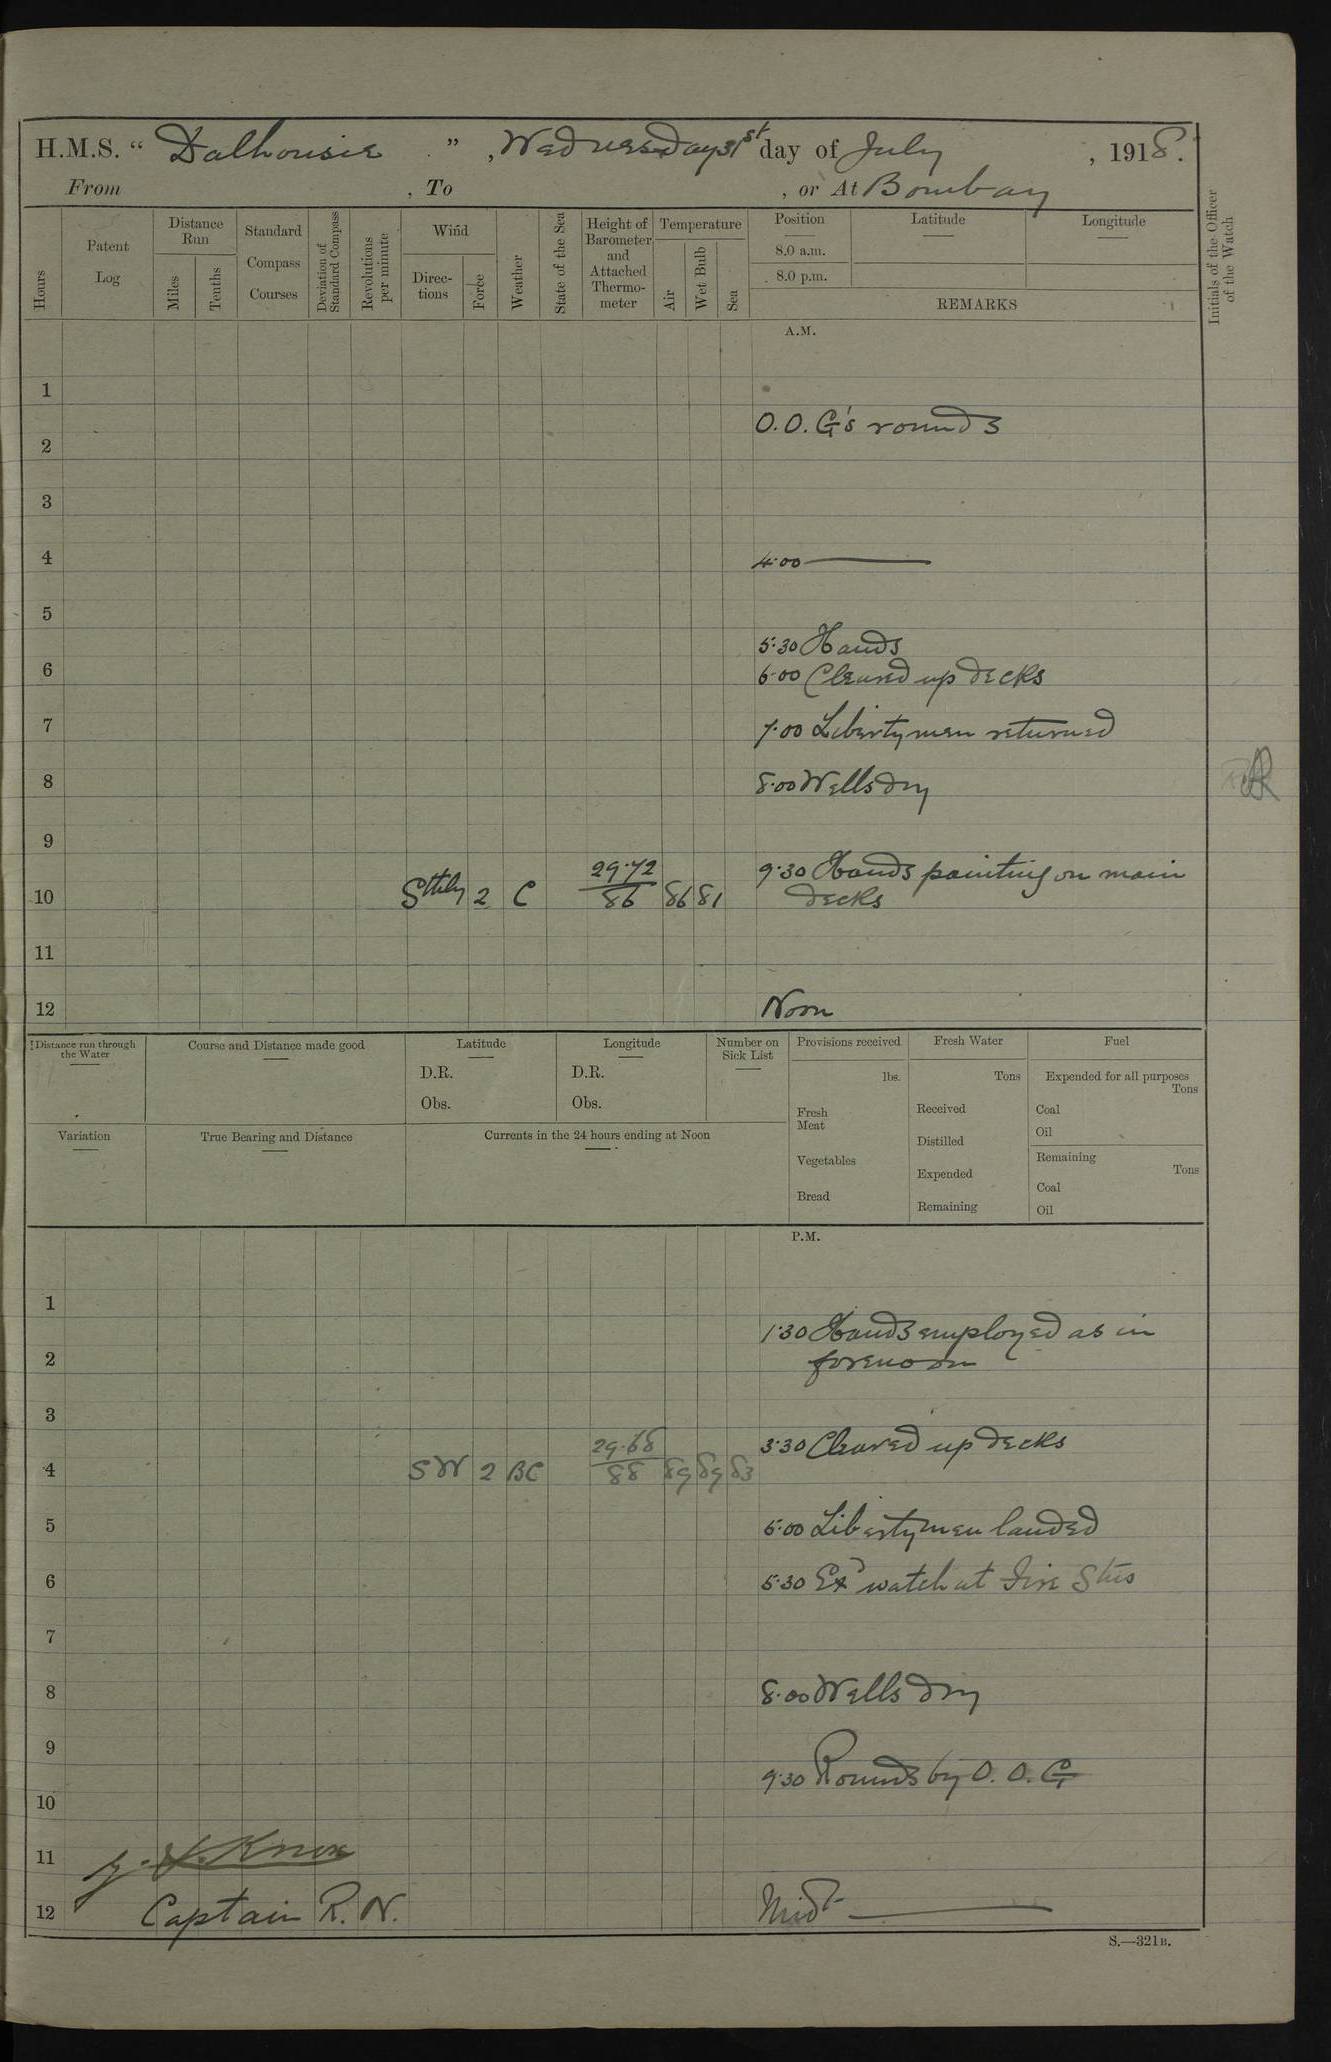 H.M.S. “ Dalhousie ” , Wednesday 31st day of July , 1918.
From , To , or At Bombay
Hours
Patent Log
Distance Run
Miles
Tenths
Standard Compass Courses
Deviation of Standard Compass
Revolutions per minute
Wind
Direc-tions
Force
Weather
State of the Sea
Height of Barometer and Attached Thermo-meter
Temperature
Air
Wet Bulb
Sea
Position
8.0 a.m.
8.0 p.m.
Latitude
Longitude
REMARKS
Initials of the Officer of the Watch
A.M.
1
O.O.G's rounds
2
3
4 4·00
5
5·30 Hands
6 6·00 Cleared up decks
7 7·00 Libertymen returned
8 8·00 Wells dry
9
29·72 9·30 Hands painting on main
10 Sthly 2 C 86 86 81 decks
11
12 Noon
Distance run through the Water
Course and Distance made good
Latitude
D.R.
Obs.
Longitude
D.R.
Obs.
Number on Sick List
Provisions received
lbs.
Fresh Meat
Vegetables
Bread
Fresh Water
Tons
Received
Distilled
Expended
Remaining
Fuel
Expended for all purposes
Tons
Coal
Oil
Remaining
Tons
Coal
Oil
Variation
True Bearing and Distance
Currents in the 24 hours ending at Noon
P.M.
1
1·30 Hands employed as in
2 forenoon
3
29·68 3·30 Cleared up decks
4 SW 2 BC 88 89 89 83
5 5·00 Libertymen landed
6 5·30 Exd watch at Fire Stns
7
8 8·00 Wells dry
9
9·30 Rounds by O.O.G
10
11 Knox
12 Captain R.N. Midt
S.—321B.